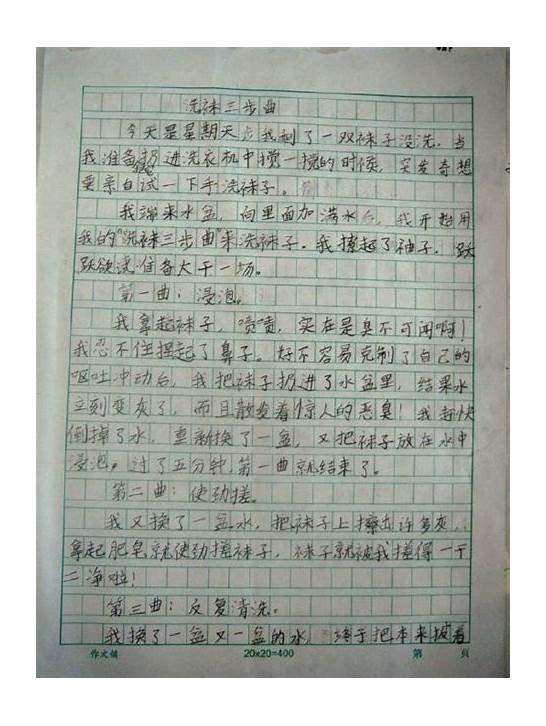 洗袜三步曲
今天是星期天，我剩了一双袜子没洗，当
我准备扔进洗衣机中搅一搅的时候，突发奇想
要亲自试一下手洗袜子。
我端来水盆，向里面加满水后，我开始用
我的"洗袜三步曲"来洗袜子。我撸起了袖子，跃
跃欲试准备大干一场。
第一曲：浸泡。
我拿起袜子，啧啧，实在是臭不可闻啊！
我忍不住捏起了鼻子。好不容易克制了自己的
呕吐冲动后，我把袜子扔进了水盆里，结果水
立刻变灰了，而且散发着惊人的恶臭！我赶快
倒掉了水，重新换了一盆，又把袜子放在水中
浸泡，过了五分钟，第一曲就结束了。
第二曲：使劲搓。
我又换了一盆水，把袜子上擦出许多灰，
拿起肥皂就使劲搓袜子，袜子就被我搓得一干
二净啦！
第三曲：反复清洗。
我换了一盆又一盆的水，终于把本来披着
作文稿 20×20=400 第 頁